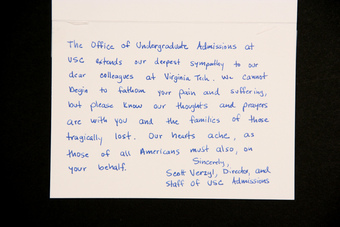 The Office of Undergraduate Admissions at
USC extends our deepest sympathy to our
dear colleagues at Virginia Tech. We cannot
begin to fathom your pain and suffering,
but please know our thoughts and prayers
are with you and the families of those
tragically lost. Our hearts ache, as
those of all Americans must also, on
your behalf.
Sincerely,
Scott Verzyl, Director, and
Staff of USC Admissions